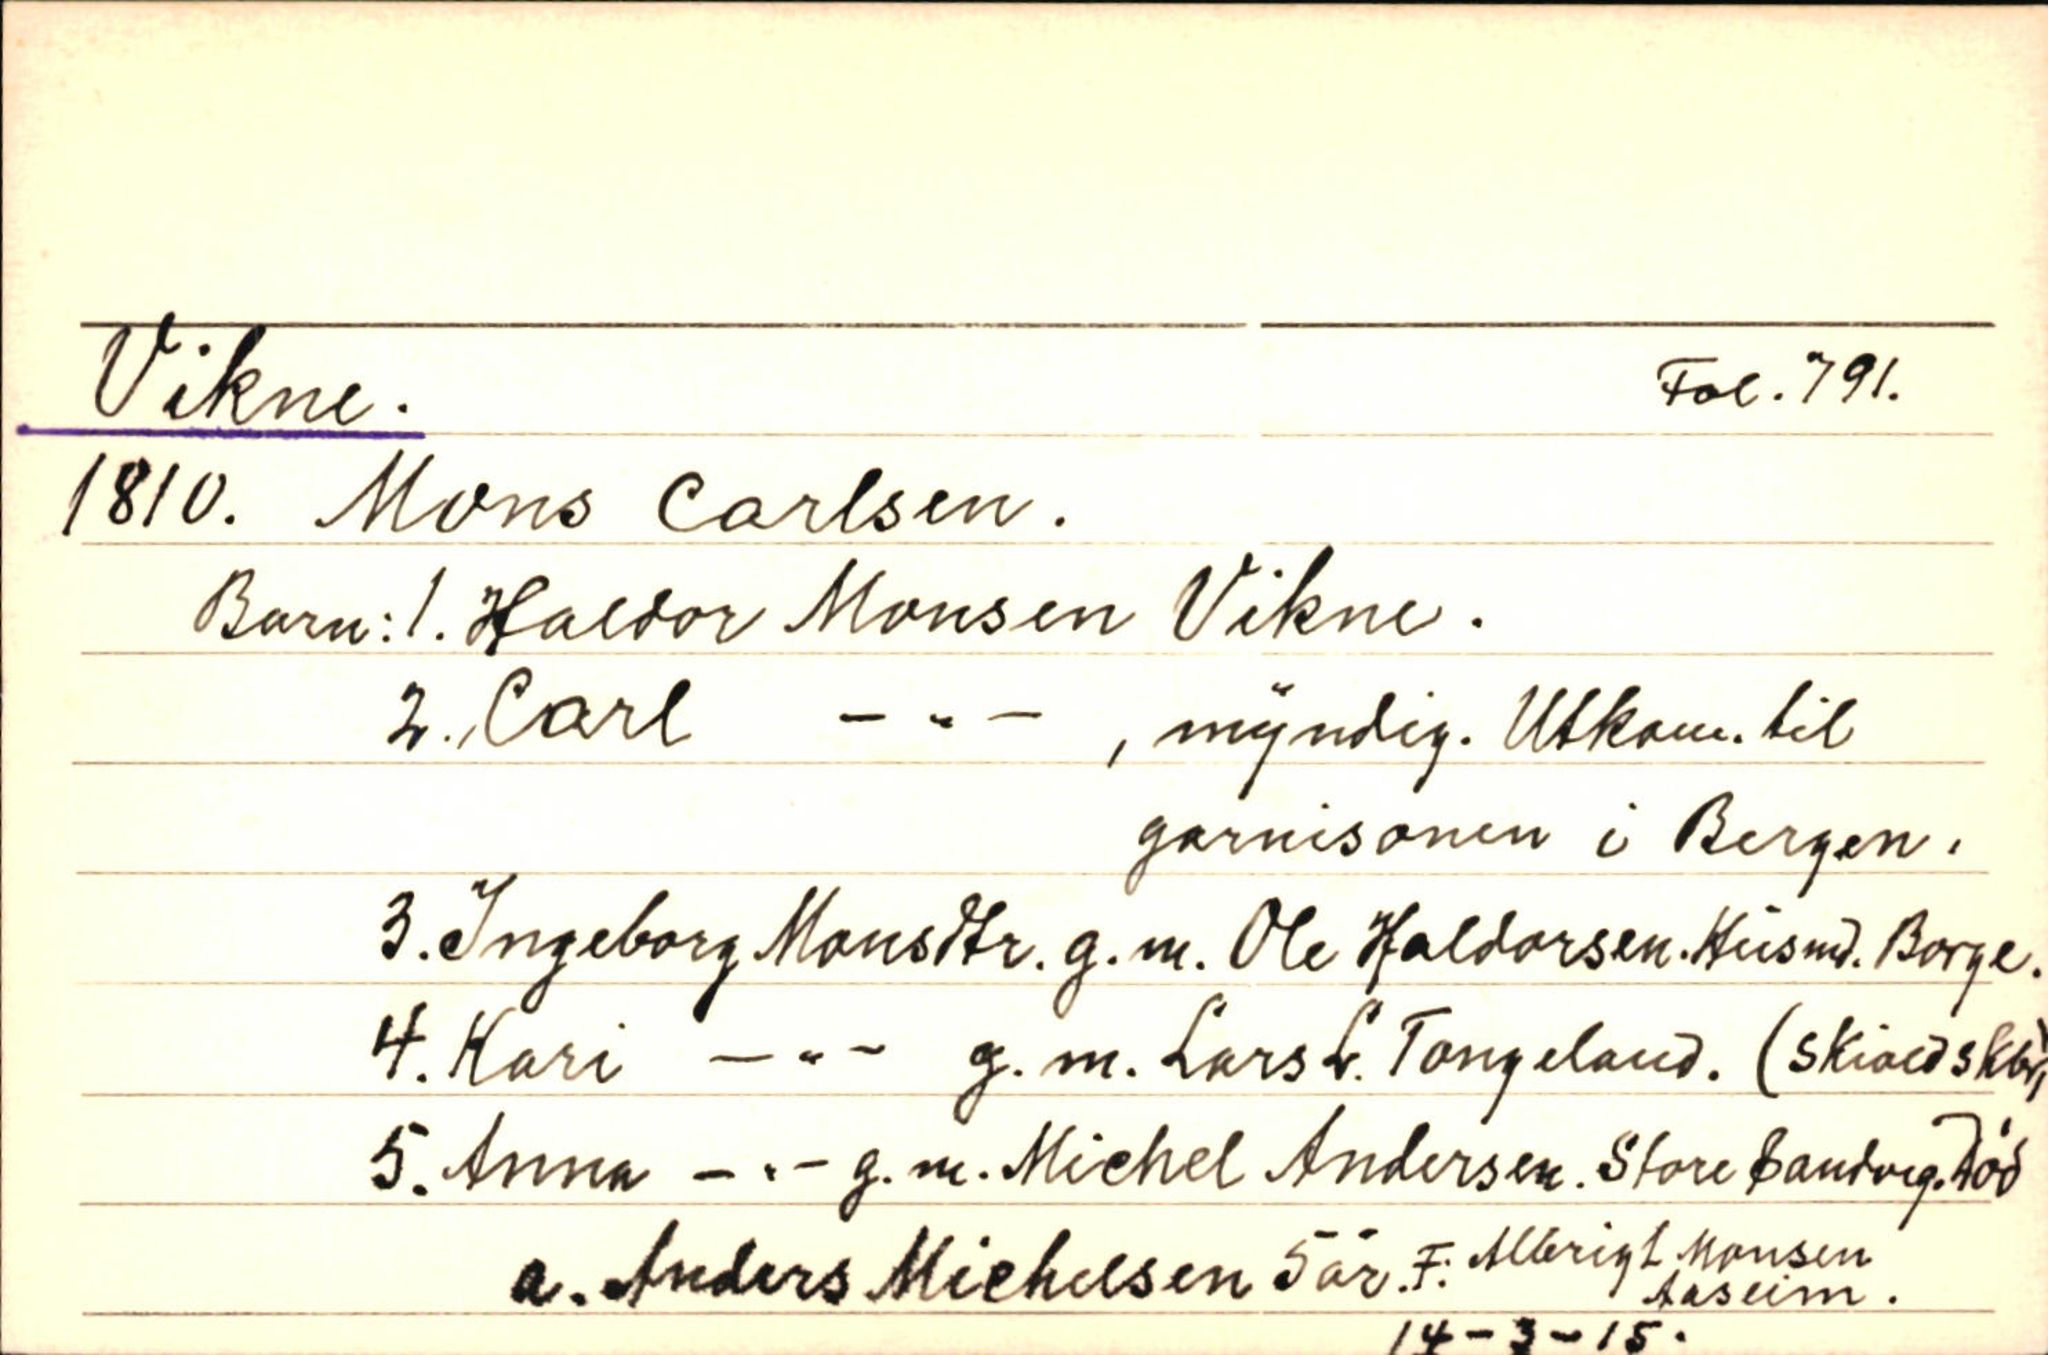 Vikne. Fol. 791.
1810. Mons Carlsen.
Barn: 1. Haldor Monsen Vikne.
2. Carl - " - , myndig. Utkom. til
garnisonen i Bergen.
3. Ingeborg Monsdtr. g. m. Ole Haldorsen. Husmd. Borge.
4. Kari - " - g. m. Lars L. Tongeland. (Skioldskbr)
5. Anna - " - g. m. Michel Andersen. Store Sandvig. Död
a. Anders Michelsen 5 år. F: Albrigt Monsen
Aaseim.
14-3-15.